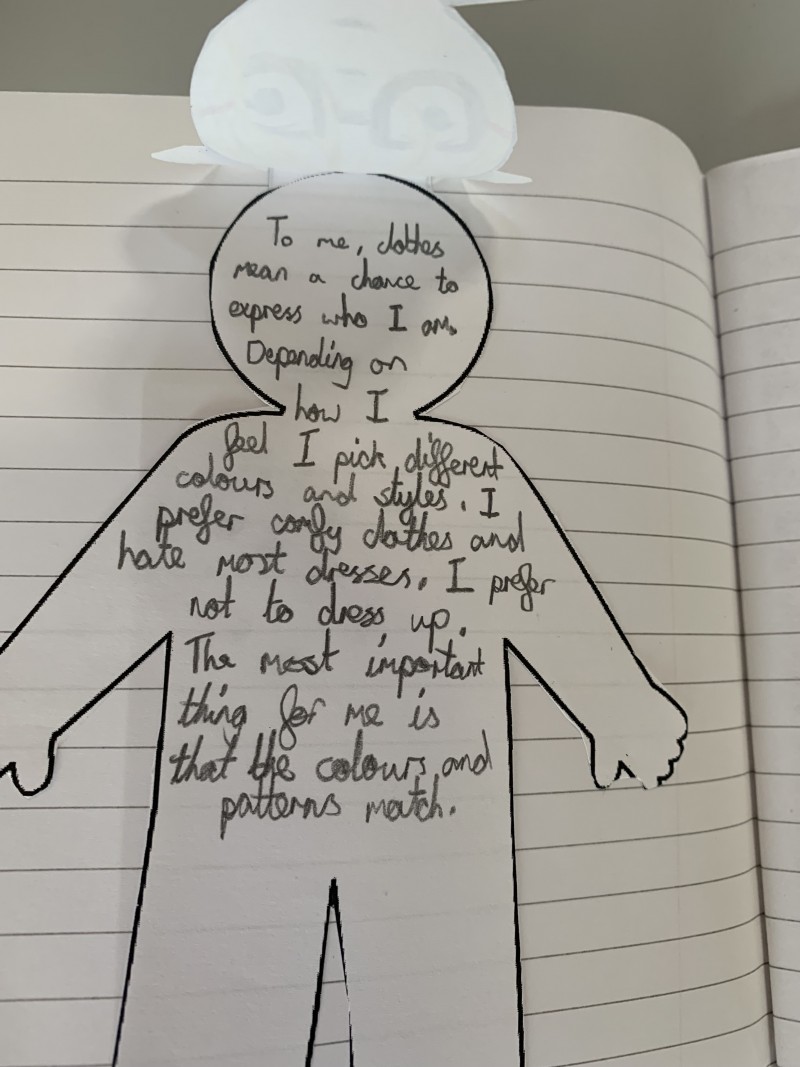 To me, clothes
mean a chance to
express who I am.
Depending on
how I
feel I pick different
colours and styles. I
prefer comfy clothes and
hate most dresses. I prefer
not to dress up.
The most important
thing for me is
that the colours and
patterns match.